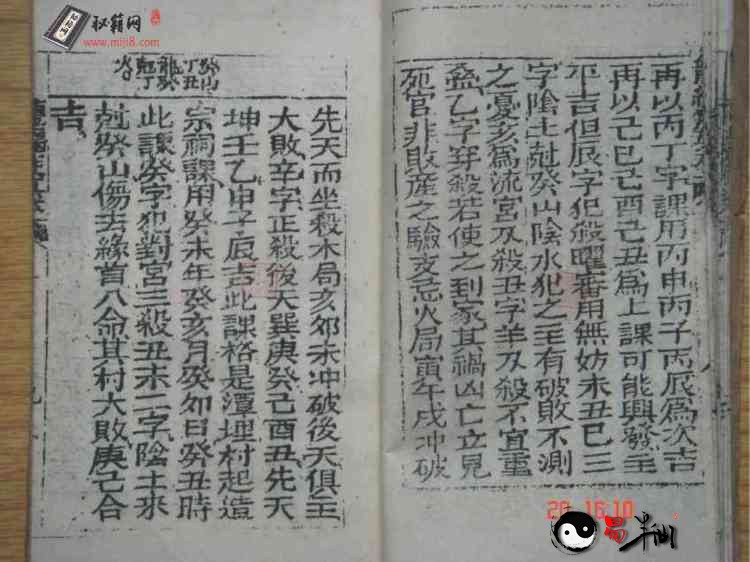 再以丙丁字課用丙申丙子丙辰為次吉
再以己巳己酉己丑為上課可能興發主
平吉但辰字犯殺曜審用無妨未丑巳三
字陰土尅癸山陰水犯之主有破敗不測
之憂亥為流宮及殺丑字羊及殺不宜重
疊乙字穿殺若使之到家其禍凶亡立見
死官非敗産之驗亥忌火局寅午戌冲破
先天而坐殺木局亥卯未冲破後天俱主
大敗辛字正殺後天巽庚癸己酉丑先天
坤壬乙申子辰吉此課格是潭埋村起造
宗祠課用癸未年癸亥月癸卯日癸丑時
此課癸字犯對宮三殺丑未二字陰土來
尅癸山傷去緣首八命其村大敗庚己合
吉
癸山
丁丑
龍癸
秘籍网
www.miji8.com
20 16:10
易半仙